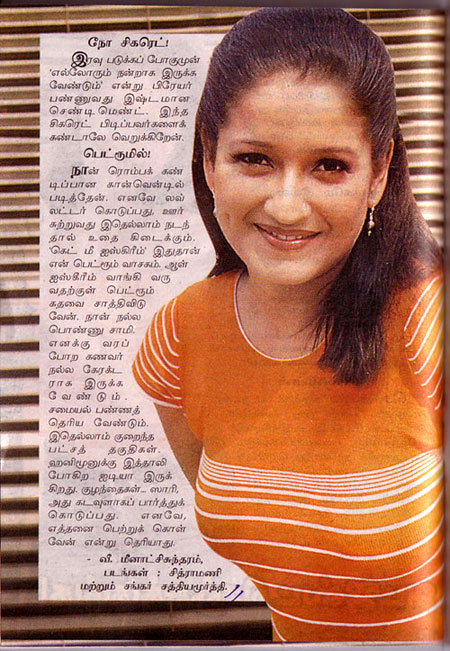 நோ சிகரெட்!
இரவு படுக்கப் போகுமுன்
'எல்லோரும் நன்றாக இருக்க
வேண்டும்' என்று பிரேயர்
பண்ணுவது இஷ்டமான
செண்டிமெண்ட். இந்த
சிகரெட் பிடிப்பவர்களைக்
கண்டாலே வெறுக்கிறேன்.
பெட்ரூமில்!
நான் ரொம்பக் கண்
டிப்பான கான்வென்டில்
படித்தேன். எனவே லவ்
லட்டர் கொடுப்பது, ஊர்
சுற்றுவது இதெல்லாம் நடந்
தால் உதை கிடைக்கும்.
'கெட் மீ ஐஸ்கிரீம்' இதுதான்
என் பெட்ரூம் வாசகம். ஆள்
ஐஸ்கிரீம் வாங்கி வரு
வதற்குள் பெட்ரூம்
கதவை சாத்திவிடு
வேன். நான் நல்ல
பொண்ணு சாமி.
எனக்கு வரப்
போற கணவர்
நல்ல கேரக்ட
ராக இருக்க
வேண்டும்.
சமையல் பண்ணத்
தெரிய வேண்டும்.
இதெல்லாம் குறைந்த
பட்சத் தகுதிகள்.
ஹனிமூனுக்கு இத்தாலி
போகிற ஐடியா இருக்
கிறது. குழந்தைகள்... ஸாரி,
அது கடவுளாகப் பார்த்துக்
கொடுப்பது. எனவே,
எத்தனை பெற்றுக் கொள்
வேன் என்று தெரியாது.
- வீ. மீனாட்சிசுந்தரம்,
படங்கள் : சித்ராமணி
மற்றும் சங்கர் சத்தியமூர்த்தி.